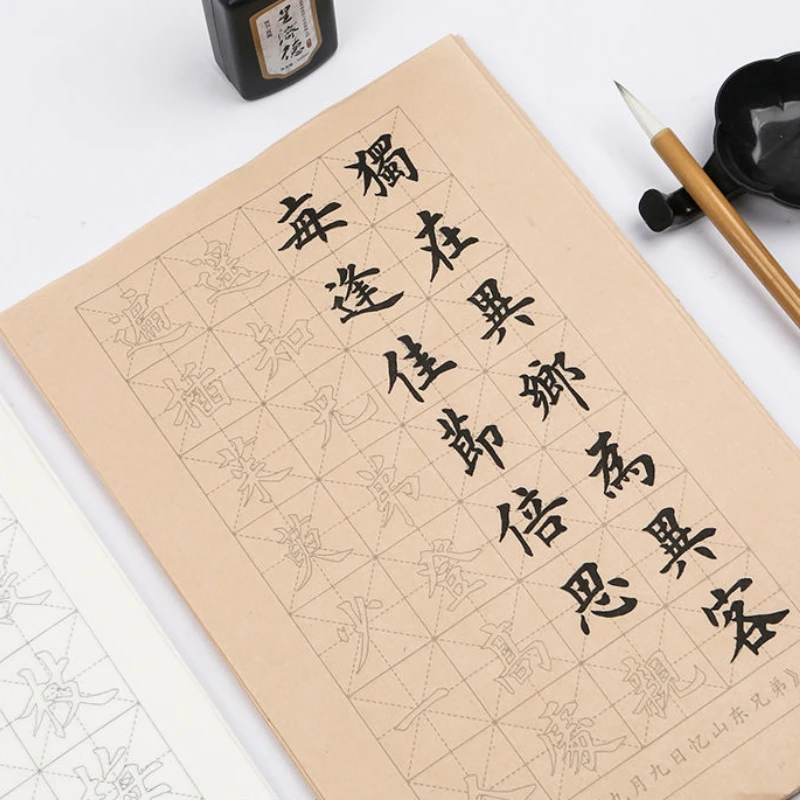 獨在異鄉為異客
每逢佳節倍思親
遥知兄弟登高處
遍插茱萸少一人
九月九日忆山东兄弟》
枝